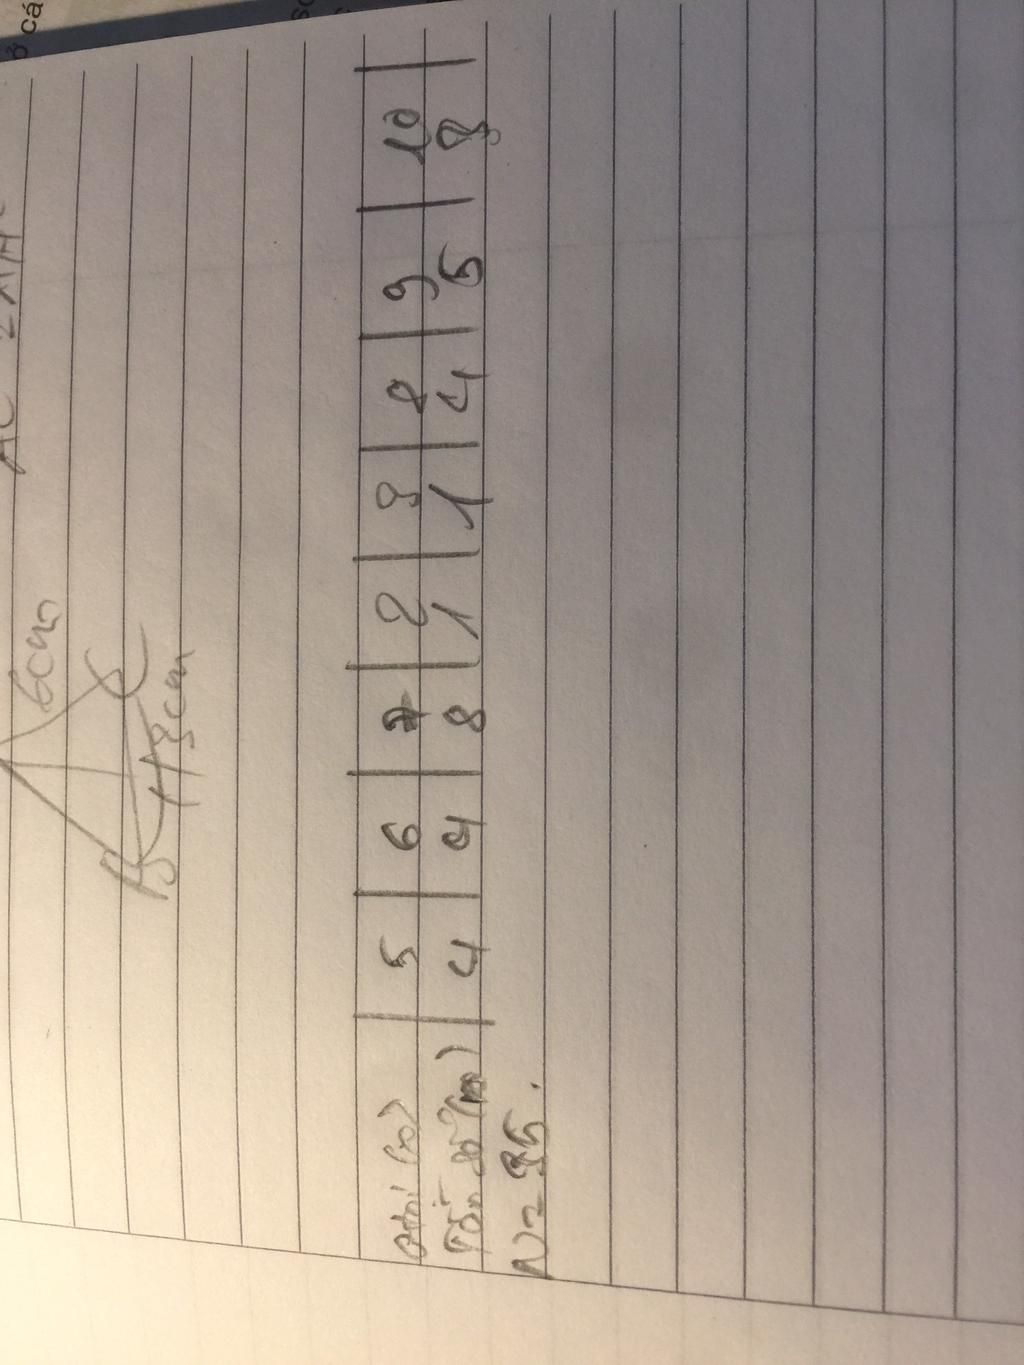 AC
6cm
B H 3cm C
điểm (x) | 5 | 6 | 7 | 2 | 3 | 8 | 9 | 10 |
Tần số (n) | 4 | 4 | 8 | 1 | 1 | 4 | 5 | 8 |
N = 35.